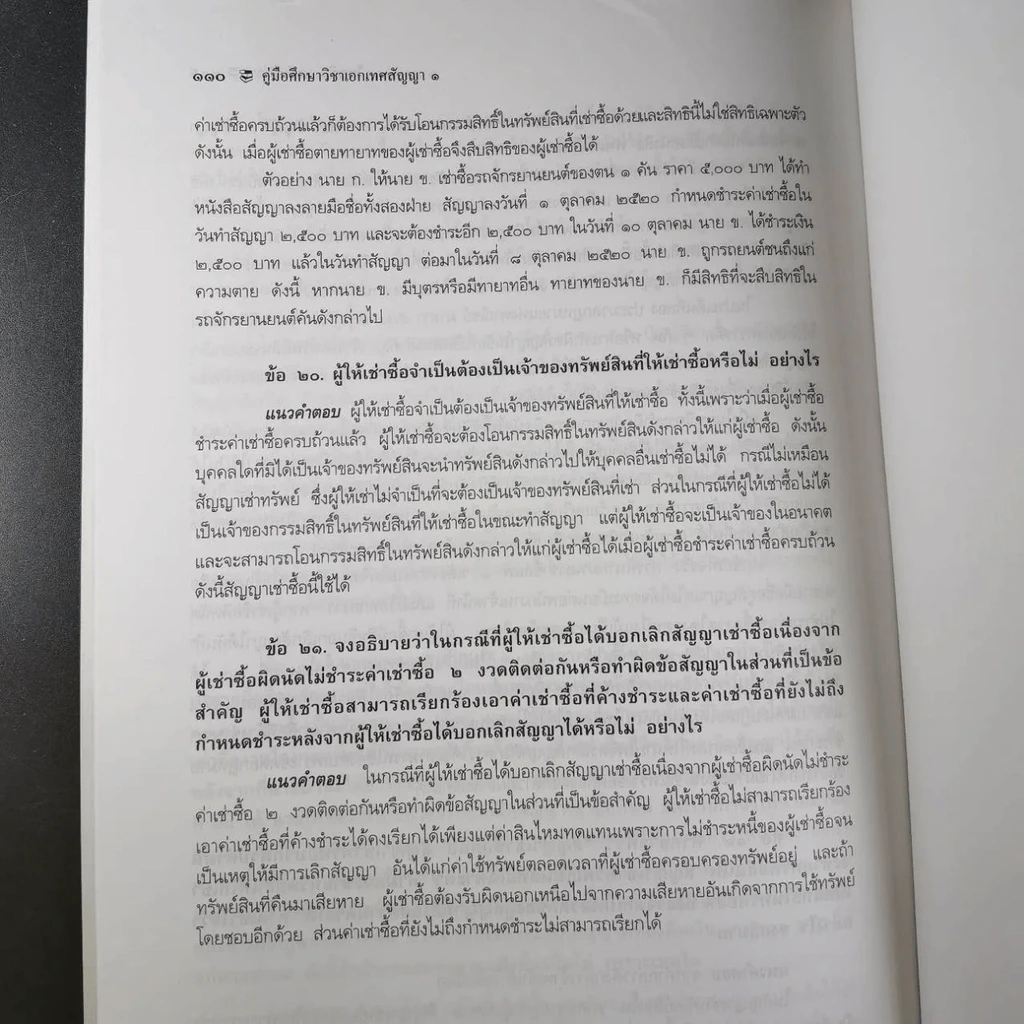 ๑๑๐ คู่มือศึกษาวิชาเอกเทศสัญญา ๑
ค่าเช่าซื้อครบถ้วนแล้วก็ต้องการได้รับโอนกรรมสิทธิ์ในทรัพย์สินที่เช่าซื้อด้วยและสิทธินี้ไม่ใช่สิทธิเฉพาะตัว
ดังนั้น เมื่อผู้เช่าซื้อตายทายาทของผู้เช่าซื้อจึงสืบสิทธิของผู้เช่าซื้อได้
ตัวอย่าง นาย ก. ให้นาย ข. เช่าซื้อรถจักรยานยนต์ของตน ๑ คัน ราคา ๕,๐๐๐ บาท ได้ทำ
หนังสือสัญญาลงลายมือชื่อทั้งสองฝ่าย สัญญาลงวันที่ ๑ ตุลาคม ๒๕๒๐ กำหนดชำระค่าเช่าซื้อใน
วันทำสัญญา ๒,๕๐๐ บาท และจะต้องชำระอีก ๒,๕๐๐ บาท ในวันที่ ๑๐ ตุลาคม นาย ข. ได้ชำระเงิน
๒,๕๐๐ บาท แล้วในวันทำสัญญา ต่อมาในวันที่ ๘ ตุลาคม ๒๕๒๐ นาย ข. ถูกรถยนต์ชนถึงแก่
ความตาย ดังนี้ หากนาย ข. มีบุตรหรือมีทายาทอื่น ทายาทของนาย ข. ก็มีสิทธิที่จะสืบสิทธิใน
รถจักรยานยนต์คันดังกล่าวไป
ข้อ ๒๐. ผู้ให้เช่าซื้อจำเป็นต้องเป็นเจ้าของทรัพย์สินที่ให้เช่าซื้อหรือไม่ อย่างไร
แนวคำตอบ ผู้ให้เช่าซื้อจำเป็นต้องเป็นเจ้าของทรัพย์สินที่ให้เช่าซื้อ ทั้งนี้เพราะว่าเมื่อผู้เช่าซื้อ
ชำระค่าเช่าซื้อครบถ้วนแล้ว ผู้ให้เช่าซื้อจะต้องโอนกรรมสิทธิ์ในทรัพย์สินดังกล่าวให้แก่ผู้เช่าซื้อ ดังนั้น
บุคคลใดที่มิได้เป็นเจ้าของทรัพย์สินจะนำทรัพย์สินดังกล่าวไปให้บุคคลอื่นเช่าซื้อไม่ได้ กรณีไม่เหมือน
สัญญาเช่าทรัพย์ ซึ่งผู้ให้เช่าไม่จำเป็นที่จะต้องเป็นเจ้าของทรัพย์สินที่เช่า ส่วนในกรณีที่ผู้ให้เช่าซื้อไม่ได้
เป็นเจ้าของกรรมสิทธิ์ในทรัพย์สินที่ให้เช่าซื้อในขณะทำสัญญา แต่ผู้ให้เช่าซื้อจะเป็นเจ้าของในอนาคต
และจะสามารถโอนกรรมสิทธิ์ในทรัพย์สินดังกล่าวให้แก่ผู้เช่าซื้อได้เมื่อผู้เช่าซื้อชำระค่าเช่าซื้อครบถ้วน
ดังนี้สัญญาเช่าซื้อนี้ใช้ได้
ข้อ ๒๑. จงอธิบายว่าในกรณีที่ผู้ให้เช่าซื้อได้บอกเลิกสัญญาเช่าซื้อเนื่องจาก
ผู้เช่าซื้อผิดนัดไม่ชำระค่าเช่าซื้อ ๒ งวดติดต่อกันหรือทำผิดข้อสัญญาในส่วนที่เป็นข้อ
สำคัญ ผู้ให้เช่าซื้อสามารถเรียกร้องเอาค่าเช่าซื้อที่ค้างชำระและค่าเช่าซื้อที่ยังไม่ถึง
กำหนดชำระหลังจากผู้ให้เช่าซื้อได้บอกเลิกสัญญาได้หรือไม่ อย่างไร
แนวคำตอบ ในกรณีที่ผู้ให้เช่าซื้อได้บอกเลิกสัญญาเช่าซื้อเนื่องจากผู้เช่าซื้อผิดนัดไม่ชำระ
ค่าเช่าซื้อ ๒ งวดติดต่อกันหรือทำผิดข้อสัญญาในส่วนที่เป็นข้อสำคัญ ผู้ให้เช่าซื้อไม่สามารถเรียกร้อง
เอาค่าเช่าซื้อที่ค้างชำระได้คงเรียกได้เพียงแต่ค่าสินไหมทดแทนเพราะการไม่ชำระหนี้ของผู้เช่าซื้อจน
เป็นเหตุให้มีการเลิกสัญญา อันได้แก่ค่าใช้ทรัพย์ตลอดเวลาที่ผู้เช่าซื้อครอบครองทรัพย์อยู่ และถ้า
ทรัพย์สินที่คืนมาเสียหาย ผู้เช่าซื้อต้องรับผิดนอกเหนือไปจากความเสียหายอันเกิดจากการใช้ทรัพย์
โดยชอบอีกด้วย ส่วนค่าเช่าซื้อที่ยังไม่ถึงกำหนดชำระไม่สามารถเรียกได้